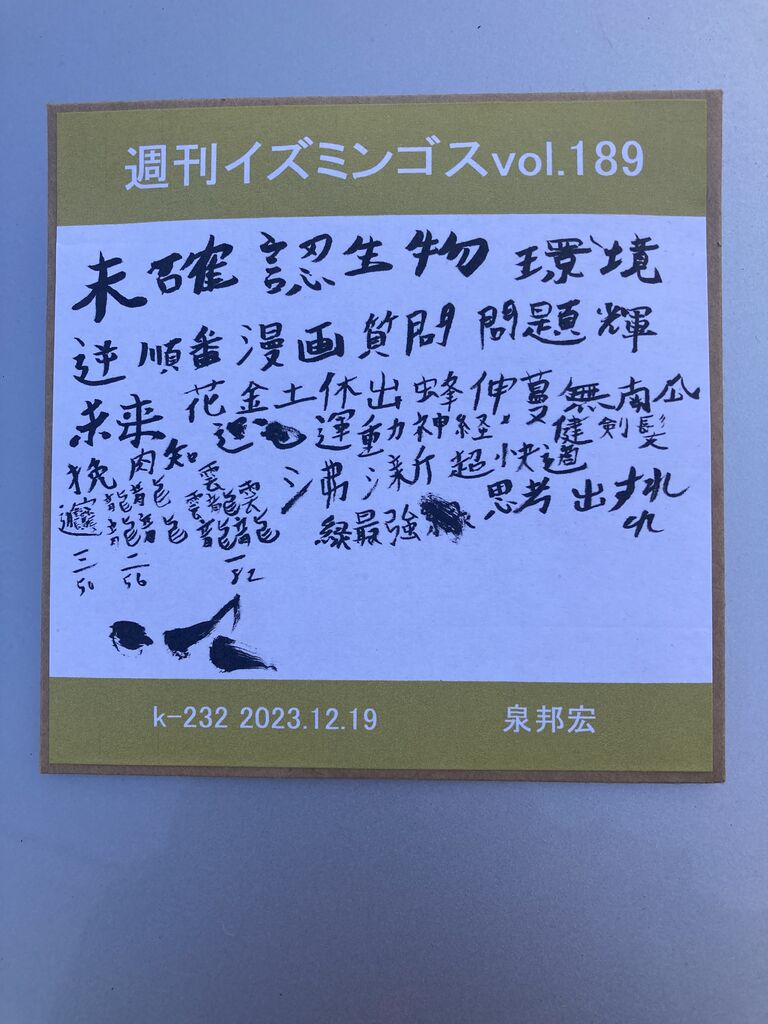 週刊イズミンゴスvol.189
未確認生物 環境
逆順番漫画質問 問題輝
未来 花金土休出蜂伸蔓無南瓜
運動神経 健剣髪
挽肉知 沸漸超快適
龍龍 雲雲雲
龍龍 龍龍龍
緑最強 思考出すれ
三 二 一
50 56 82
k-232 2023.12.19 泉邦宏